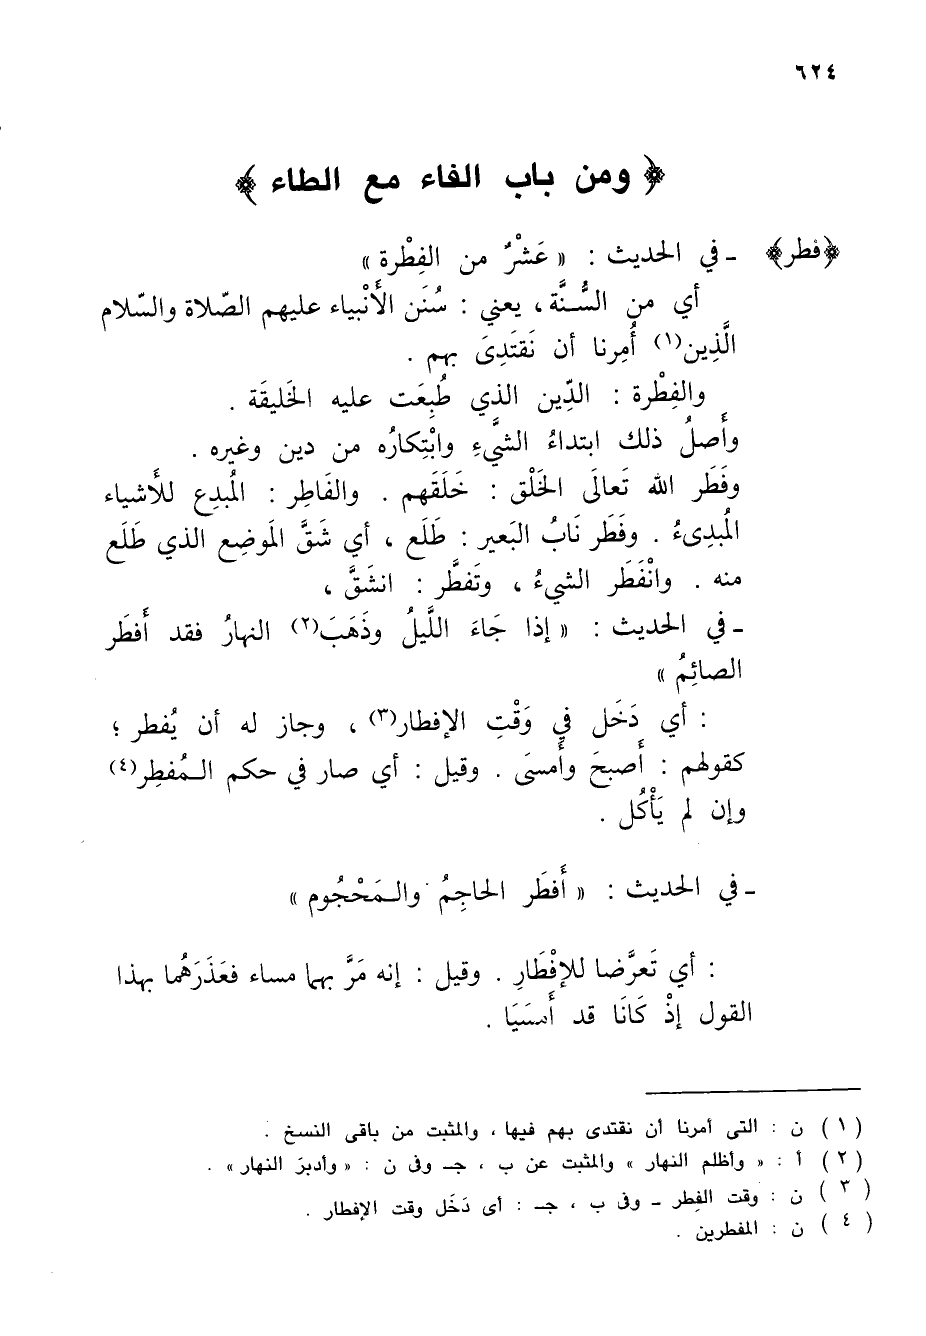 ٦٢٤
﴿ ومن باب الفاء مع الطاء ﴾
﴿فطر﴾ ـ في الحديث : « عَشْرٌ من الفِطْرة »
أي من السُّنَّة ، يعني : سُنَن الأَنْبياء عليهم الصّلاة والسّلام
الَّذِين(١) أُمِرنا أن نَقتَدِىَ بهم .
والفِطْرة : الدِّين الذي طُبِعَت عليه الخَليقَة .
وأَصلُ ذلك ابتداءُ الشَّيءِ وابْتِكارُه من دين وغيره .
وفَطَر الله تَعالَى الخَلْق : خَلَقَهم . والفَاطِر : المُبدِع للأَشياء
المُبدِىءُ . وفَطَر نَابُ البَعير : طَلَع ، أي شَقَّ المَوضِع الذي طَلَع
منه . وانْفَطَر الشيءُ ، وتَفطَّر : انشَقَّ ،
ـ في الحديث : « إذا جَاءَ اللَّيلُ وذَهَبَ(٢) النهارُ فقد أَفطَر
الصائِمُ »
: أي دَخَل في وَقْتِ الإفطار(٣) ، وجاز له أن يُفطر ؛
كقولهم : أَصبحَ وأَمسَى . وقيل : أي صار في حكم المُفطِر(٤)
وإن لم يَأْكُل .
ـ في الحديث : « أَفطَر الحاجِمُ والمَحْجُوم »
: أي تَعرَّضا للإفْطَارِ . وقيل : إنه مَرَّ بهما مساء فعَذَرَهُما بهذا
القول إذْ كَانَا قد أَمسَيَا .
(١) ن : التى أمرنا أن نقتدى بهم فيها ، والمثبت من باقى النسخ .
(٢) أ : « وأظلم النهار » والمثبت عن ب ، جـ وفى ن : « وأدبرَ النهار » .
(٣) ن : وقت الفِطر ـ وفى ب ، جـ : أى دَخَل وقت الإفطار .
(٤) ن : المفطرين .